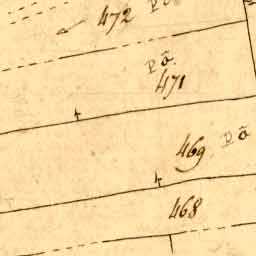 472 põ
põ
471
469 põ
468